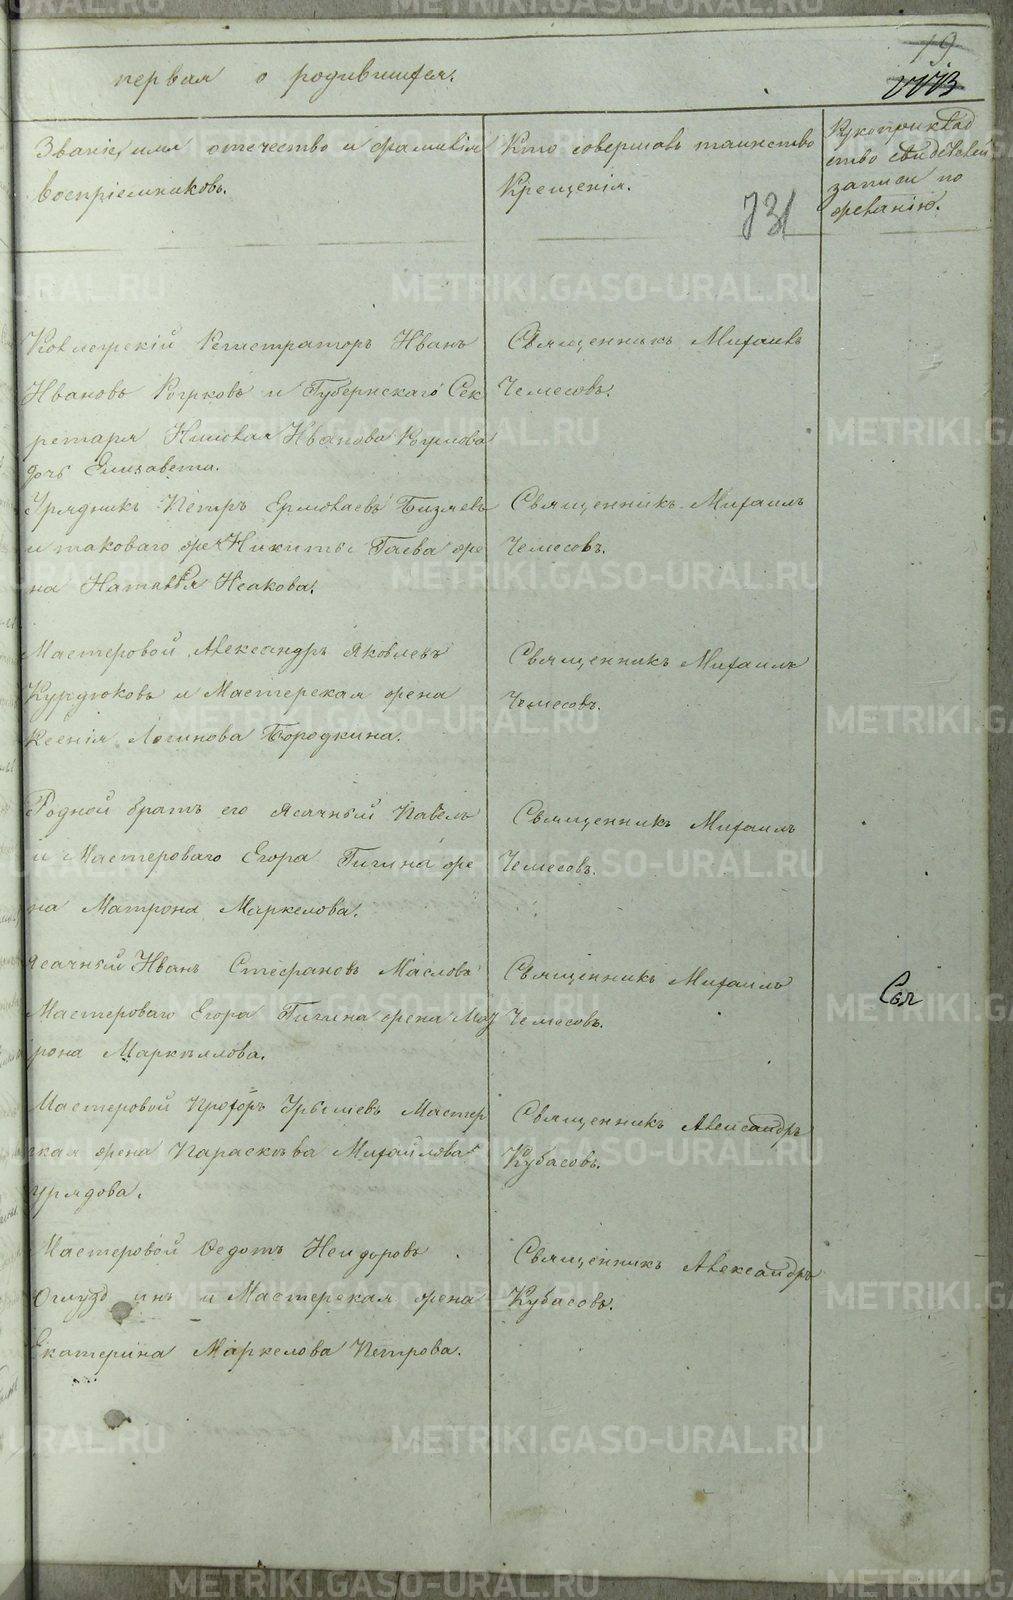 первая о родившихся.
19
731
Званiе, имя отечество и фамилiя
Воспрiемниковъ.
Кто совершалъ таинство
Крещенiя.
Рукоприклад
ство свидѣтелей
записи по
желанiю.
Коллежскiй Регистраторъ Иванъ
Ивановъ и Губернскаго Сек
ретаря Иванова
дочь Елизавета.
Священникъ Михаилъ
Чемесовъ.
Урядникъ Петръ Ермолаевъ Бизяевъ
и таковаго же Никиты Гаева же
на Наталья Исакова.
Священникъ Михаилъ
Чемесовъ.
Мастеровой Александръ Яковлевъ
Курдюковъ и Мастерская жена
Ксенiя Логинова Бородкина.
Священникъ Михаилъ
Чемесовъ.
Родной братъ его Ясачный Павелъ
и Мастероваго Егора Гигина же
на Матрона Маркелова.
Священникъ Михаилъ
Чемесовъ.
Ясачный Иванъ Стефановъ Масловъ
Мастероваго Егора Гигина жена Мат
рона Маркѣлова.
Священникъ Михаилъ
Чемесовъ.
Свя
Мастеровой Прохоръ Мастер
ская жена Параскѣва Михайлова
Священникъ Александръ
Кубасовъ.
Мастеровой Федотъ Неидоровъ
и Мастерская жена
Екатерина Маркелова Петрова.
Священникъ Александръ
Кубасовъ.
METRIKI.GASO-URAL.RU